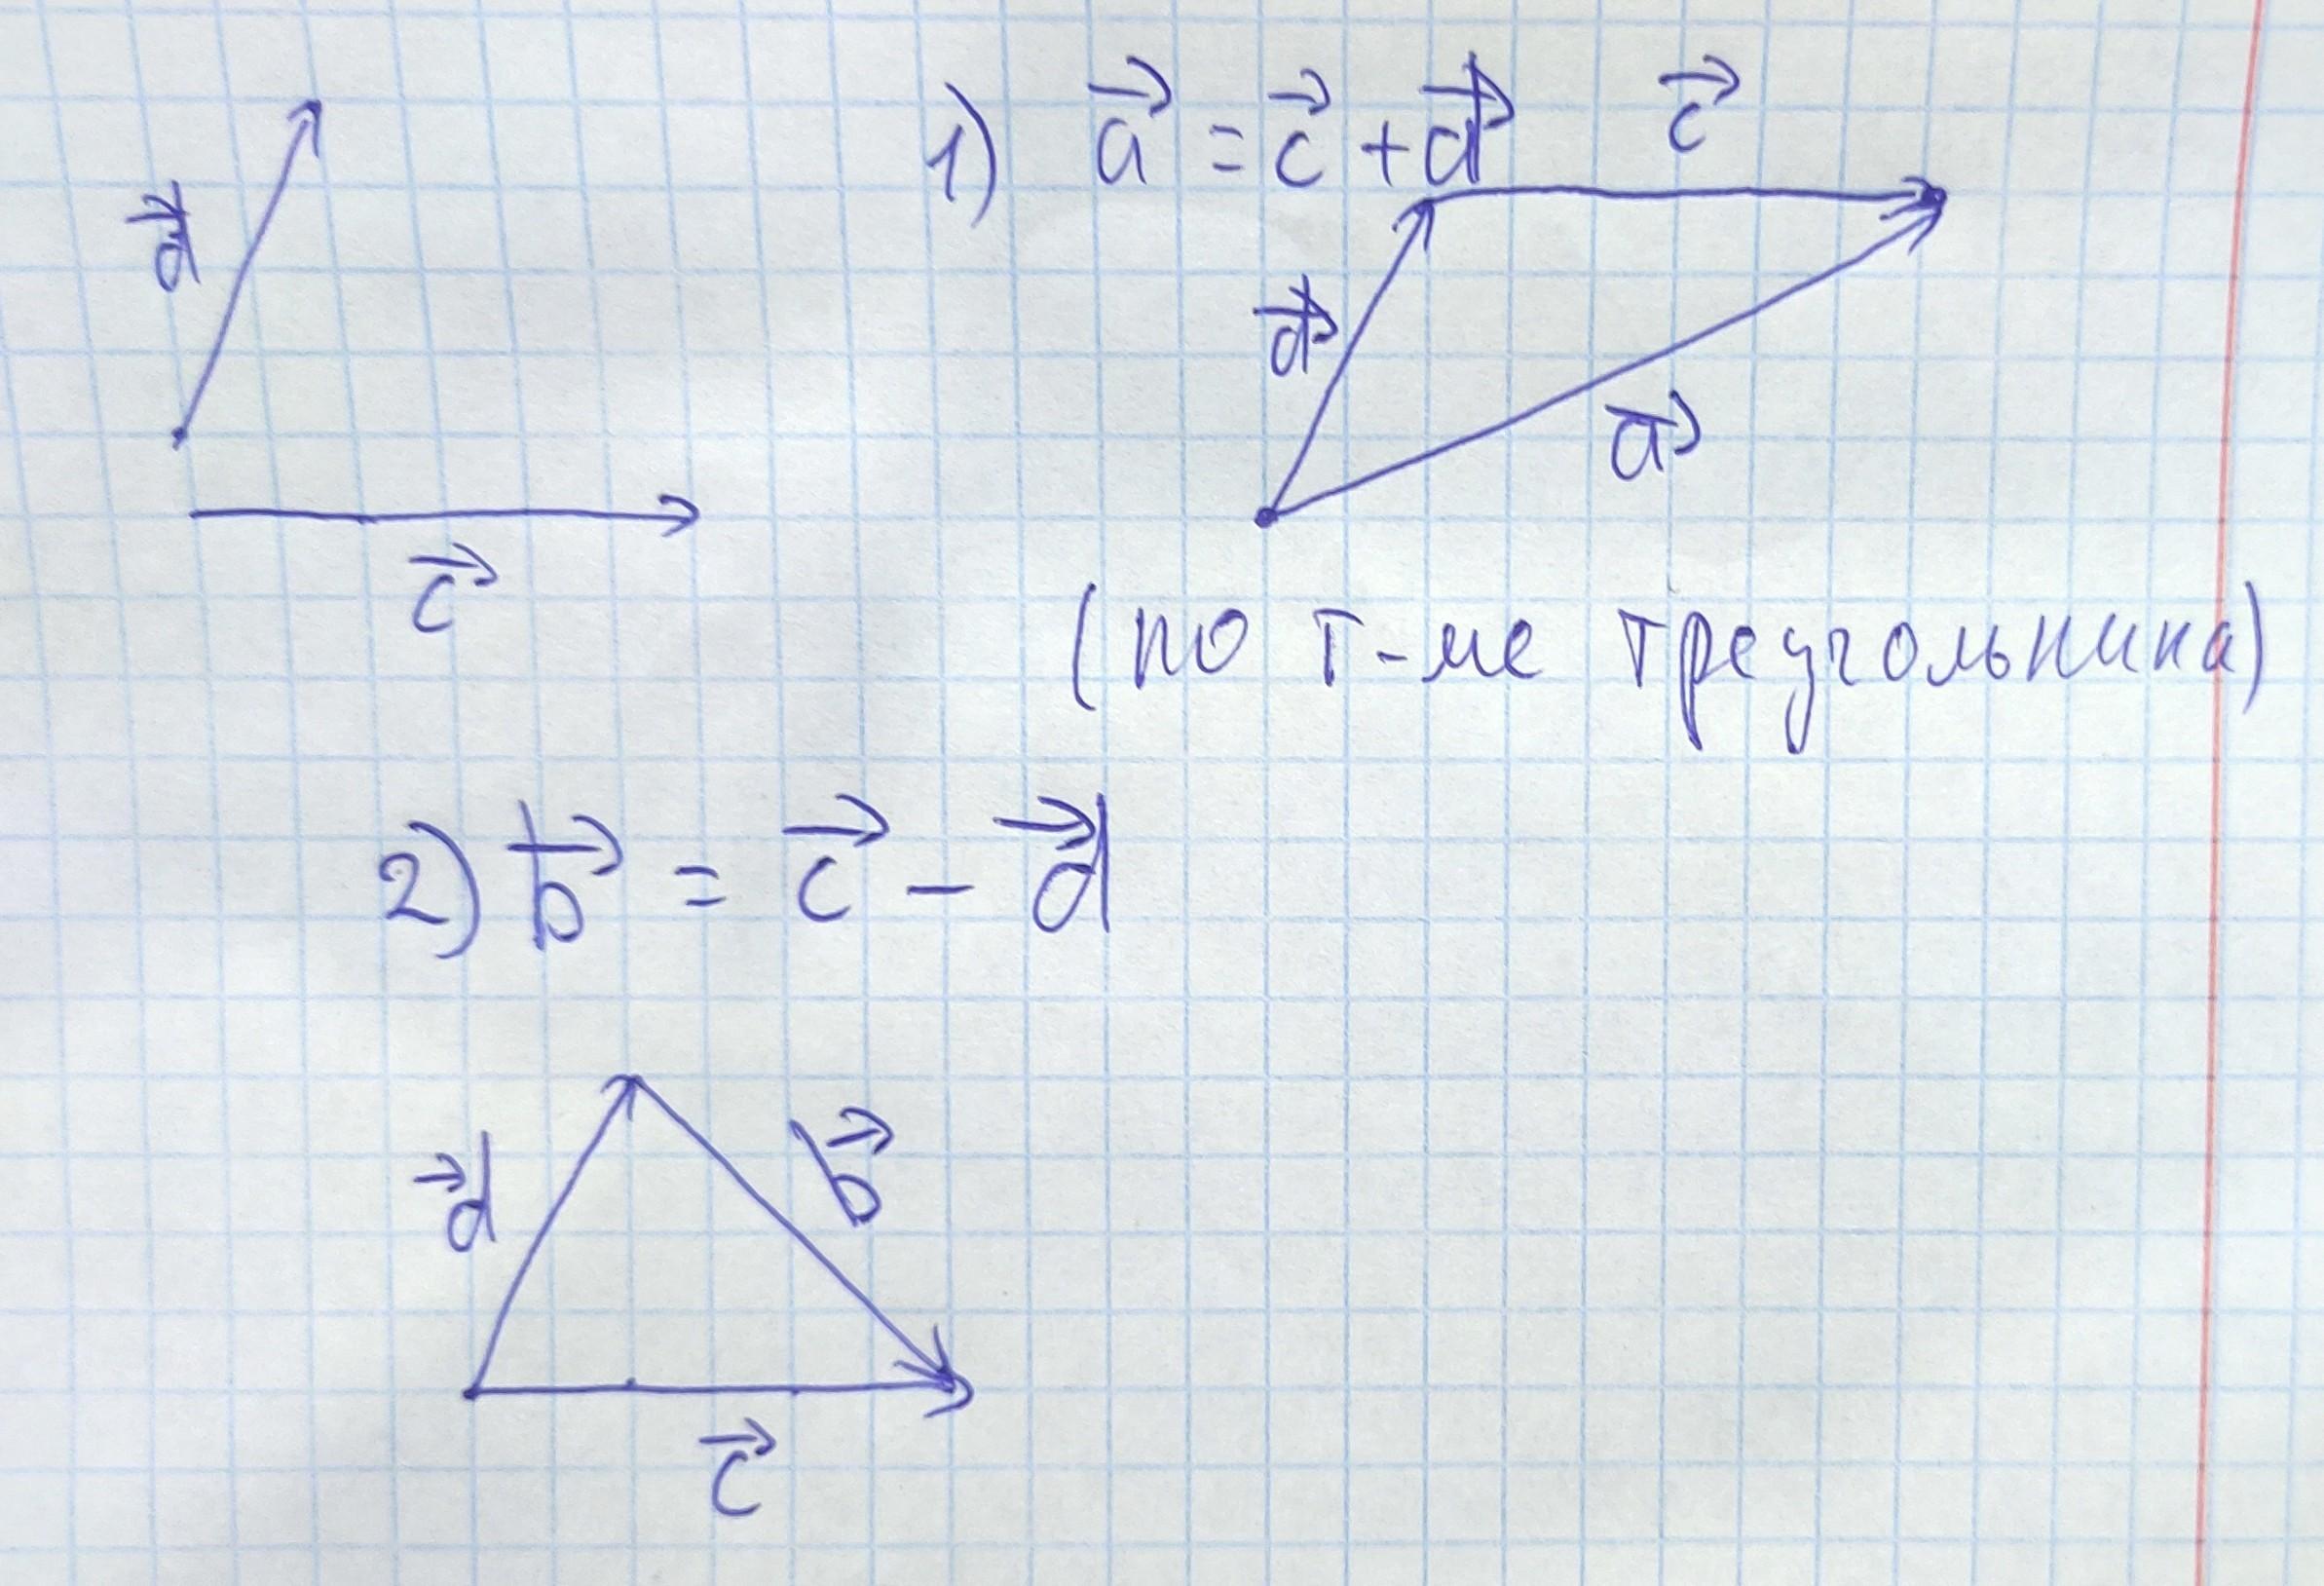 d⃗
c⃗
1) a⃗ = c⃗ + d⃗
c⃗
d⃗
a⃗
(по т-ме треугольника)
2) b⃗ = c⃗ − d⃗
d⃗
b⃗
c⃗